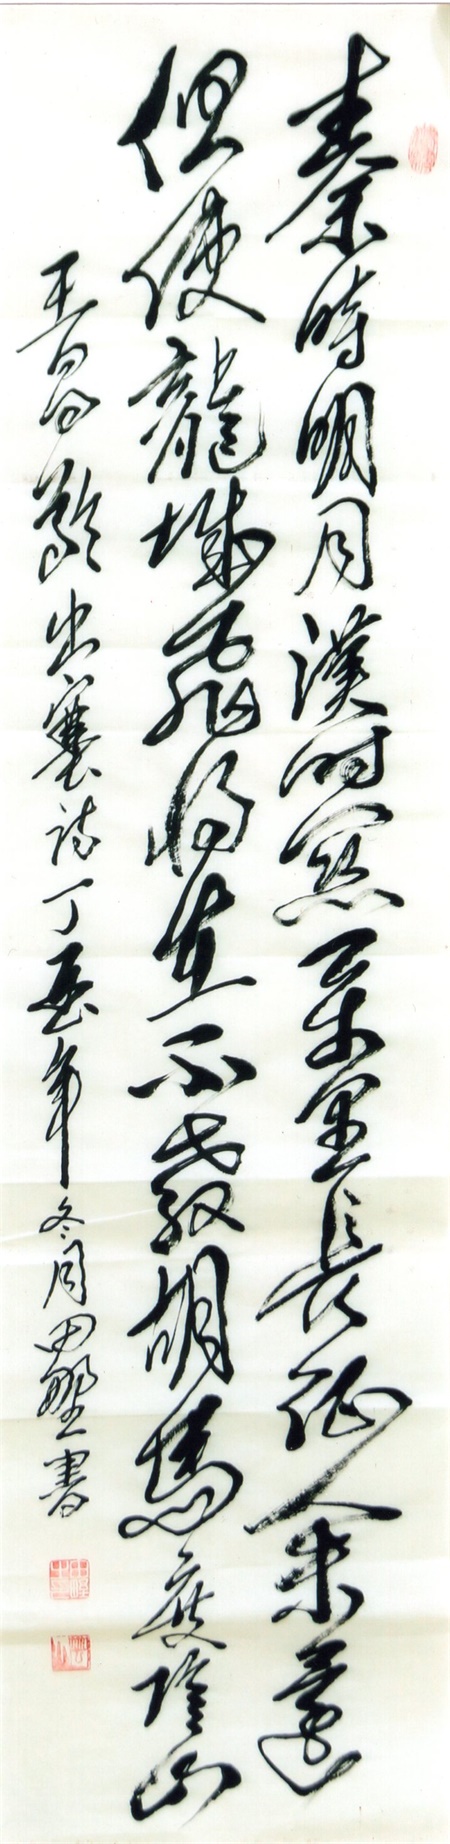 秦時明月漢時關萬里長征人未還
但使龍城飛將在不教胡馬度陰山
王昌齡出塞詩丁丑年冬月田野書